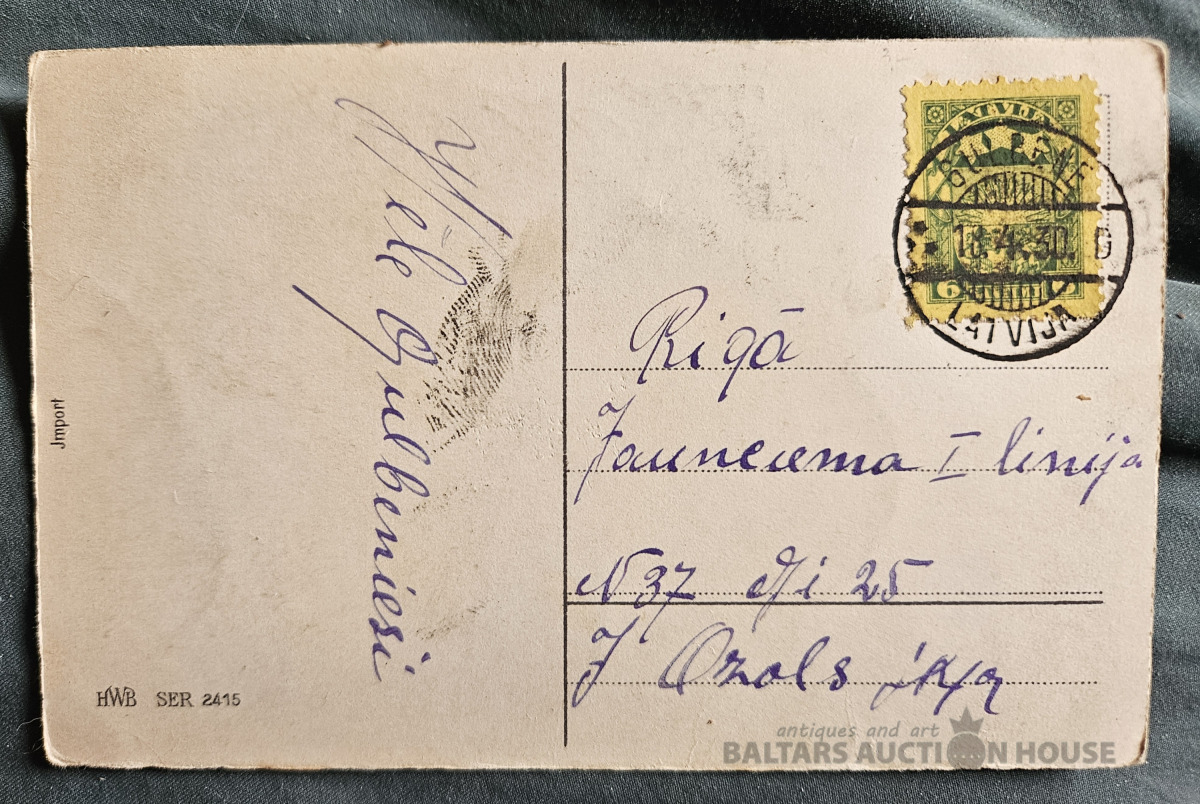 Vēlē Gulbenieši
Import
HWB SER 2415
LATVIJA
6
18.4.30. G
LATVIJA
Rigā
Jauneuema I linija
N 37 dzi 25
J Ozols
antiques and art
BALTARS AUCTION HOUSE